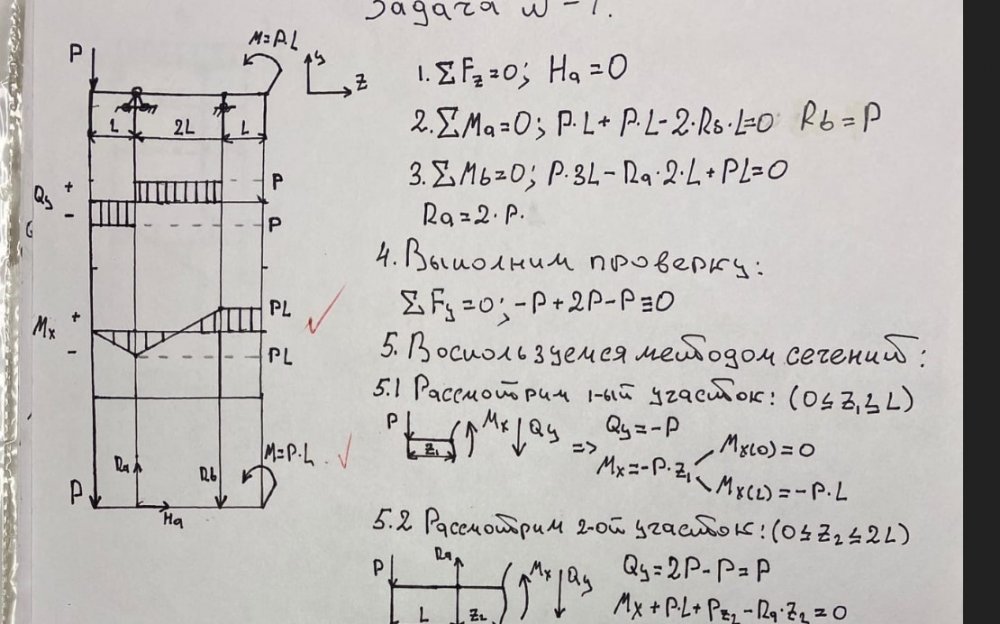 Задача N-1.
P
M=PL
y
z
L
2L
L
Qy
+
-
P
P
Mx
+
-
PL
PL
P
Ra
Ha
Rb
M=P.L
1. ΣFz=0; Ha=0
2. ΣMa=0; P·L+P·L-2·Rb·L=0 Rb=P
3. ΣMb=0; P·3L-Ra·2·L+PL=0
Ra=2·P.
4. Выполним проверку:
ΣFy=0; -P+2P-P≡0
5. Воспользуемся методом сечений:
5.1 Рассмотрим 1-ый участок: (0≤z₁≤L)
P
z₁
Mx
Qy
=> Qy=-P
Mx=-P·z₁
Mx(0)=0
Mx(L)=-P·L
5.2 Рассмотрим 2-ой участок: (0≤z₂≤2L)
P
Ra
L
z₂
Mx
Qy
Qy=2P-P=P
Mx+P·L+Pz₂-Ra·z₂=0